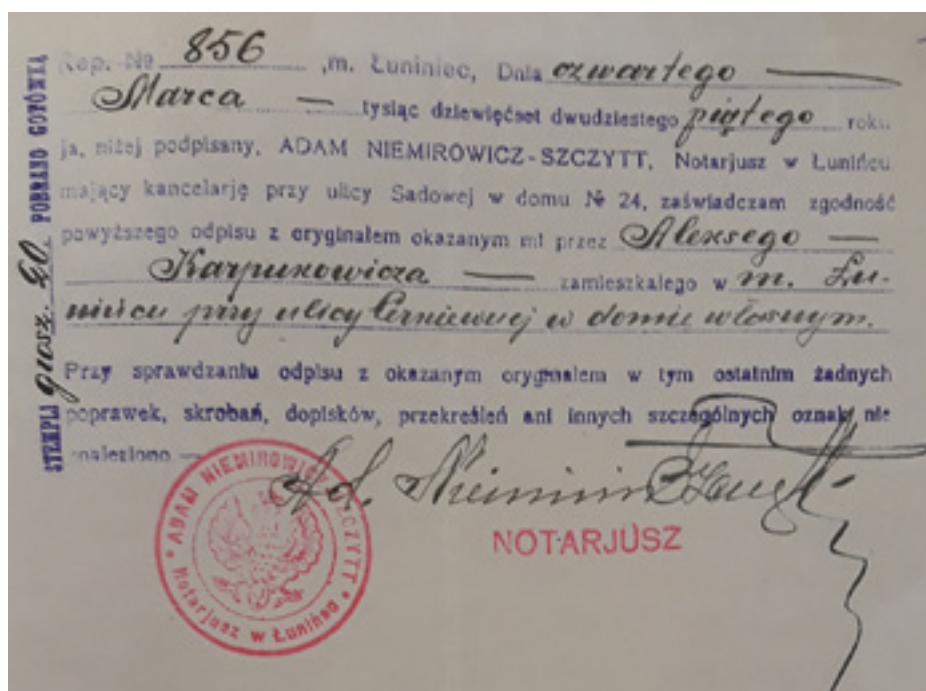 Rep. № 856 , m. Łuniniec, Dnia czwartego —
Marca — tysiąc dziewięćset dwudziestego piątego roku
ja, niżej podpisany, ADAM NIEMIROWICZ-SZCZYTT, Notarjusz w Łunińcu
mający kancelarję przy ulicy Sadowej w domu № 24, zaświadczam zgodność
powyższego odpisu z oryginałem okazanym mi przez Aleksego —
Karpunowicza — zamieszkałego w m. Łu-
nińcu przy ulicy w domie własnym.
Przy sprawdzaniu odpisu z okazanym oryginałem w tym ostatnim żadnych
poprawek, skrobań, dopisków, przekreśleń ani innych szczególnych oznak nie
znaleziono —
STEMPLA grosz. 40 POBRANO GOTÓWKĄ
Ad. Niemirowicz Szczytt
NOTARJUSZ
ADAM NIEMIROWICZ SZCZYTT
Notarjusz w Łunińcu